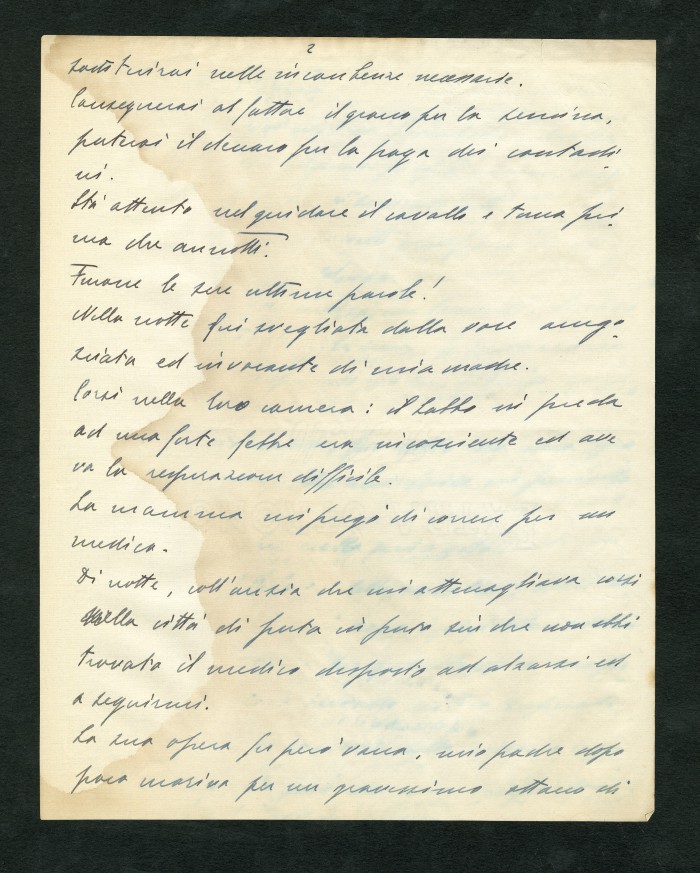 2
sostituirai nelle incombenze necessarie.
Consegnerai al fattore il grano per la semina,
porterai il denaro per la paga dei contadi-
ni.
Stà attento nel guidare il cavallo e torna pri-
ma che annotti.
Furono le sue ultime parole!
Nella notte fui svegliata dalla voce ango-
sciata ed invocante di mia madre.
Corsi nella loro camera: il babbo in preda
ad una forte febbre era incosciente ed ave
va la respirazione difficile.
La mamma mi pregò di correre per un
medico.
Di notte, coll'ansia che mi attanagliava corsi
nella città di porta in porta sin che non ebbi
trovato il medico disposto ad alzarsi ed
a seguirmi.
La sua opera fu però vana, mio padre dopo
poco moriva per un gravissimo attacco di